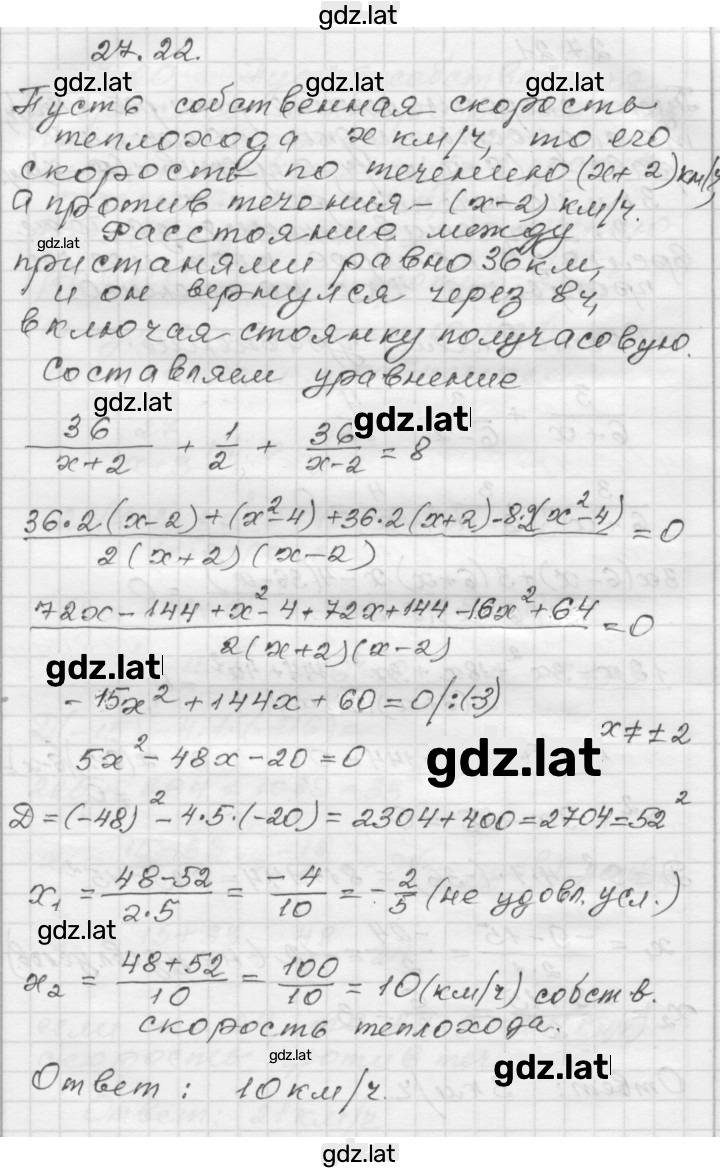 gdz.lat
27.22.
gdz.lat gdz.lat gdz.lat
Пусть собственная скорость
теплохода x км/ч, то его
скорость по течению (x+2) км/ч,
а против течения – (x-2) км/ч.
gdz.lat
Расстояние между
пристанями равно 36 км,
и он вернулся через 8ч,
включая стоянку получасовую.
Составляем уравнение
gdz.lat
gdz.lat
36/(x+2) + 1/2 + 36/(x-2) = 8
(36·2(x-2)+(x²-4)+36·2(x+2)-8·2(x²-4))/(2(x+2)(x-2)) = 0
(72x-144+x²-4+72x+144-16x²+64)/(2(x+2)(x-2)) = 0
gdz.lat
-15x²+144x+60=0/:(-3)
x≠±2
5x²-48x-20=0
gdz.lat
D=(-48)²-4·5·(-20)=2304+400=2704=52²
x₁ = (48-52)/(2·5) = -4/10 = -2/5 (не удовл. усл.)
gdz.lat
x₂ = (48+52)/10 = 100/10 = 10 (км/ч) собств.
скорость теплохода.
gdz.lat
gdz.lat
Ответ: 10 км/ч.
gdz.lat